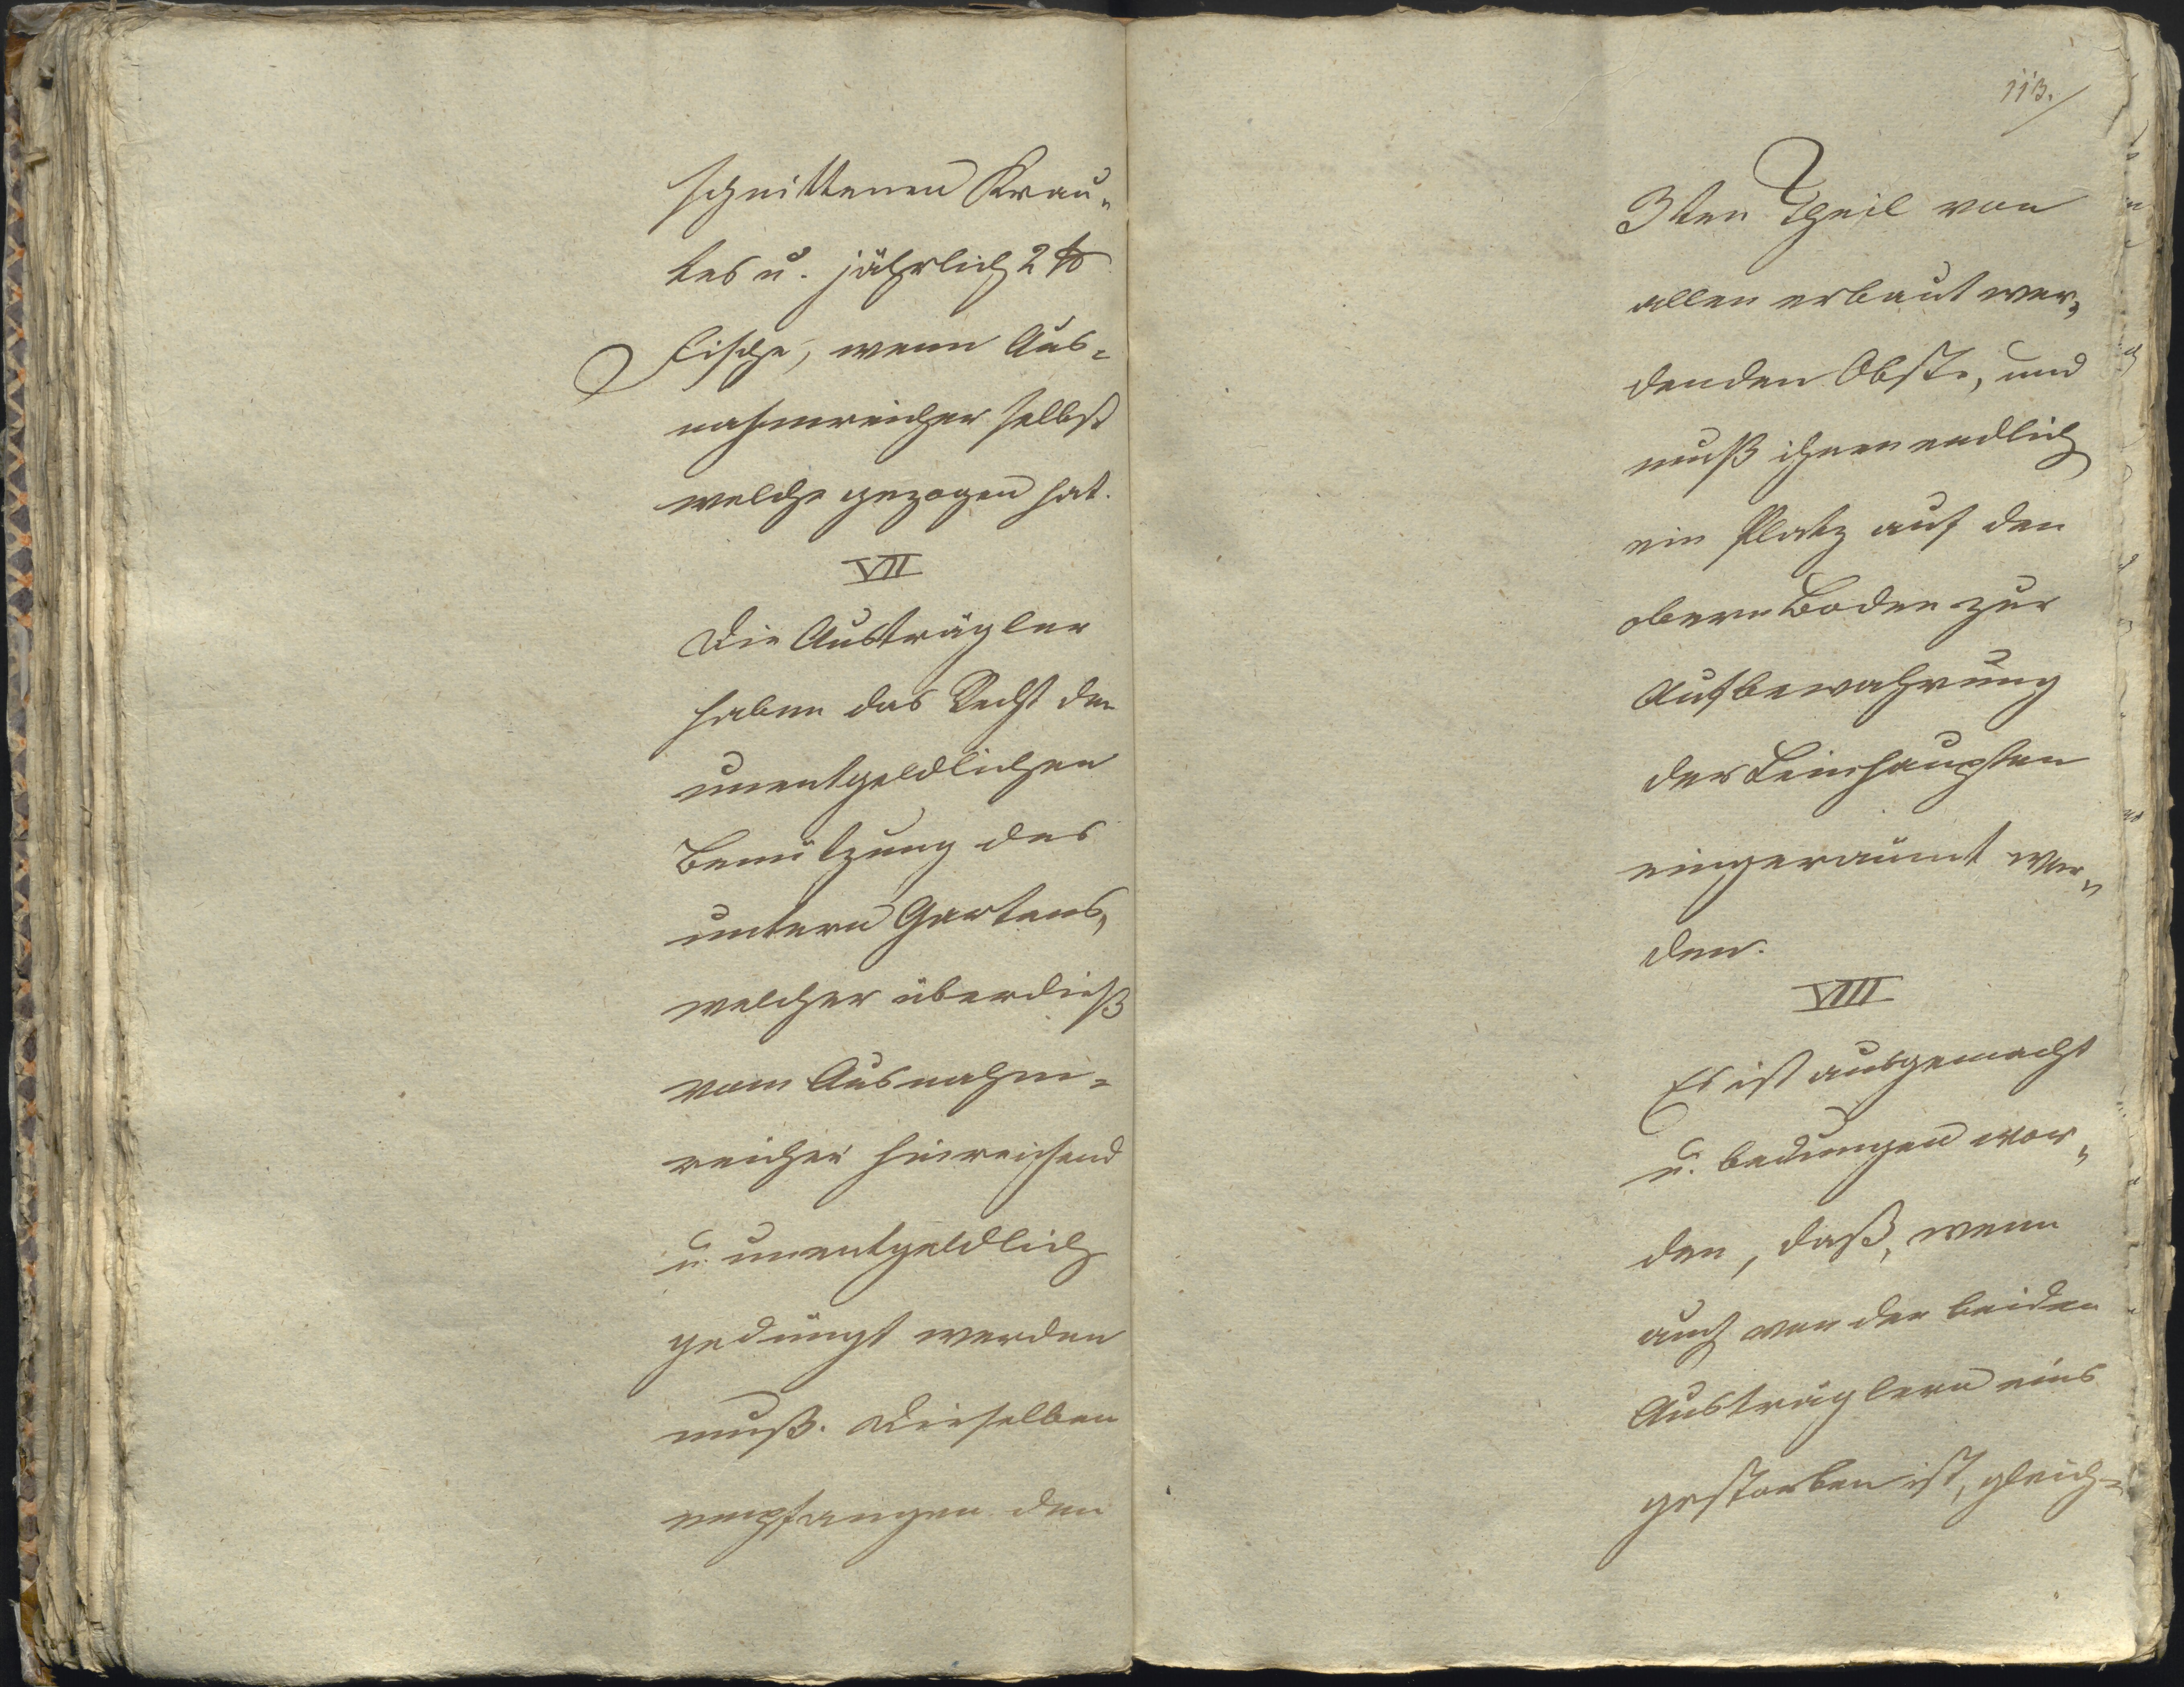 schnittenen Krau„
tes u. jährlich 2 ℔
Fische, wenn Aus=
nahmreicher selbst
welche gezogen hat.
VII
Die Austrägler
haben das Recht der
unentgeldlichen
Benützung des
untern Gartens,
welcher überdieß
vom Ausnahm=
reicher hinreichend
u. unentgeldlich
gedüngt werden
muß. Dieselben
empfangen den
113.
3ten Theil von
allen erbaut wer„
denden Obste, und
muß ihnen endlich
ein Platz auf den
obern Boden zur
Aufbewahrung
der
eingeraumt wer„
den.
VIII
Es ist ausgemacht
u. bedungen wor„
den, daß, wenn
auch von der beiden
Austräglern eins
gestorben ist, gleich=